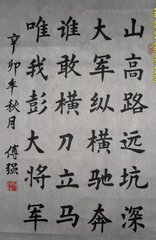 山高路远坑深
大军纵横驰奔
谁敢横刀立马
唯我彭大将军
辛卯年秋月 傅强